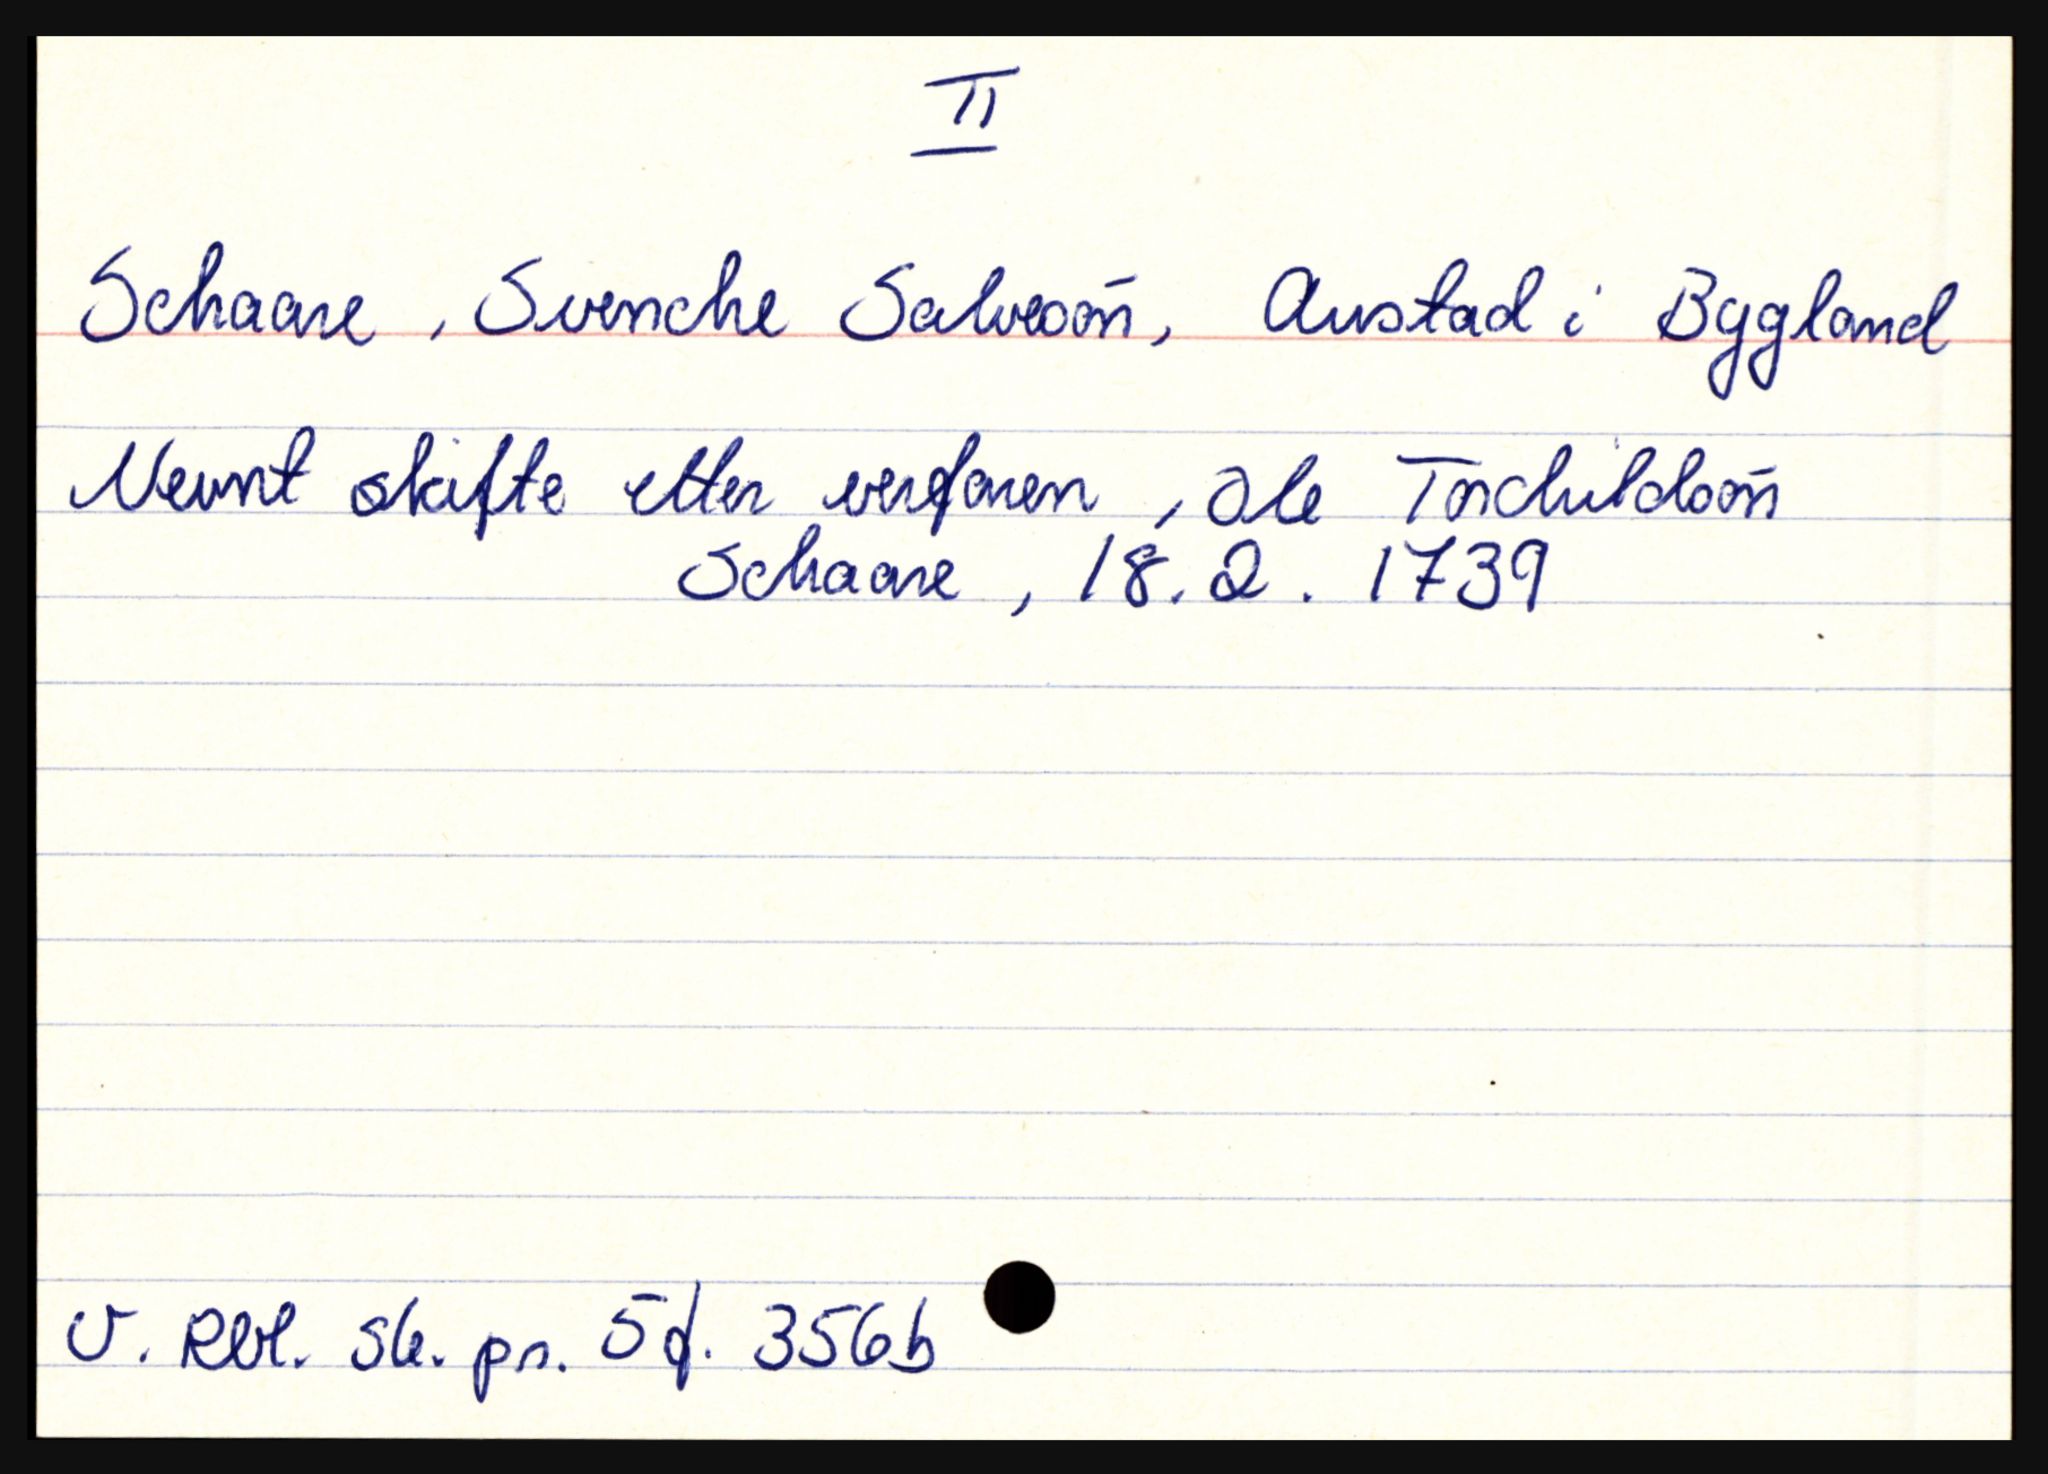 II
Schaare, Svenche Salvesøn, Austad i Bygland
Nevnt skifte etter verfaren, Ole Torchildsøn
Schaare, 18.2.1739
V. Rbl. sk. pr. 5 f. 356b